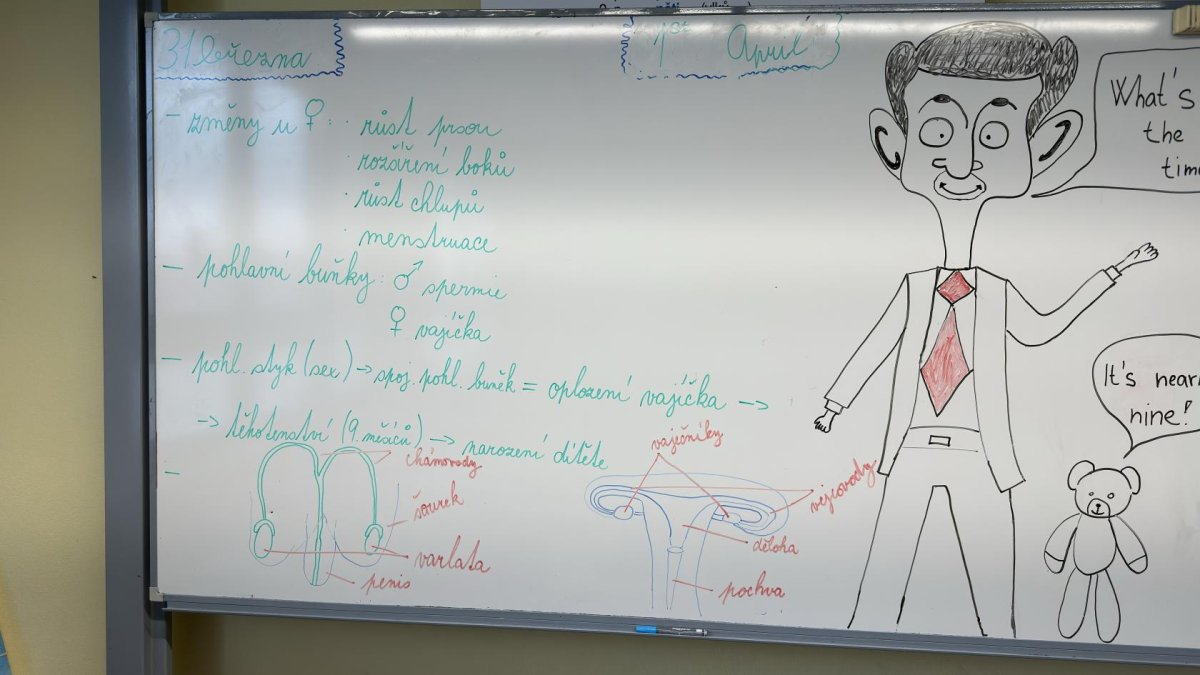 31. března
1st April
- změny u ♀: · růst prsou
· rozšíření boků
· růst chlupů
· menstruace
- pohlavní buňky: ♂ spermie
♀ vajíčka
- pohl. styk (sex) → spoj. pohl. buněk = oplození vajíčka →
→ těhotenství (9. měsíců) → narození dítěte
-
chámovody
šourek
varlata
penis
vaječníky
vejcovody
děloha
pochva
What's
the
It's
nine!